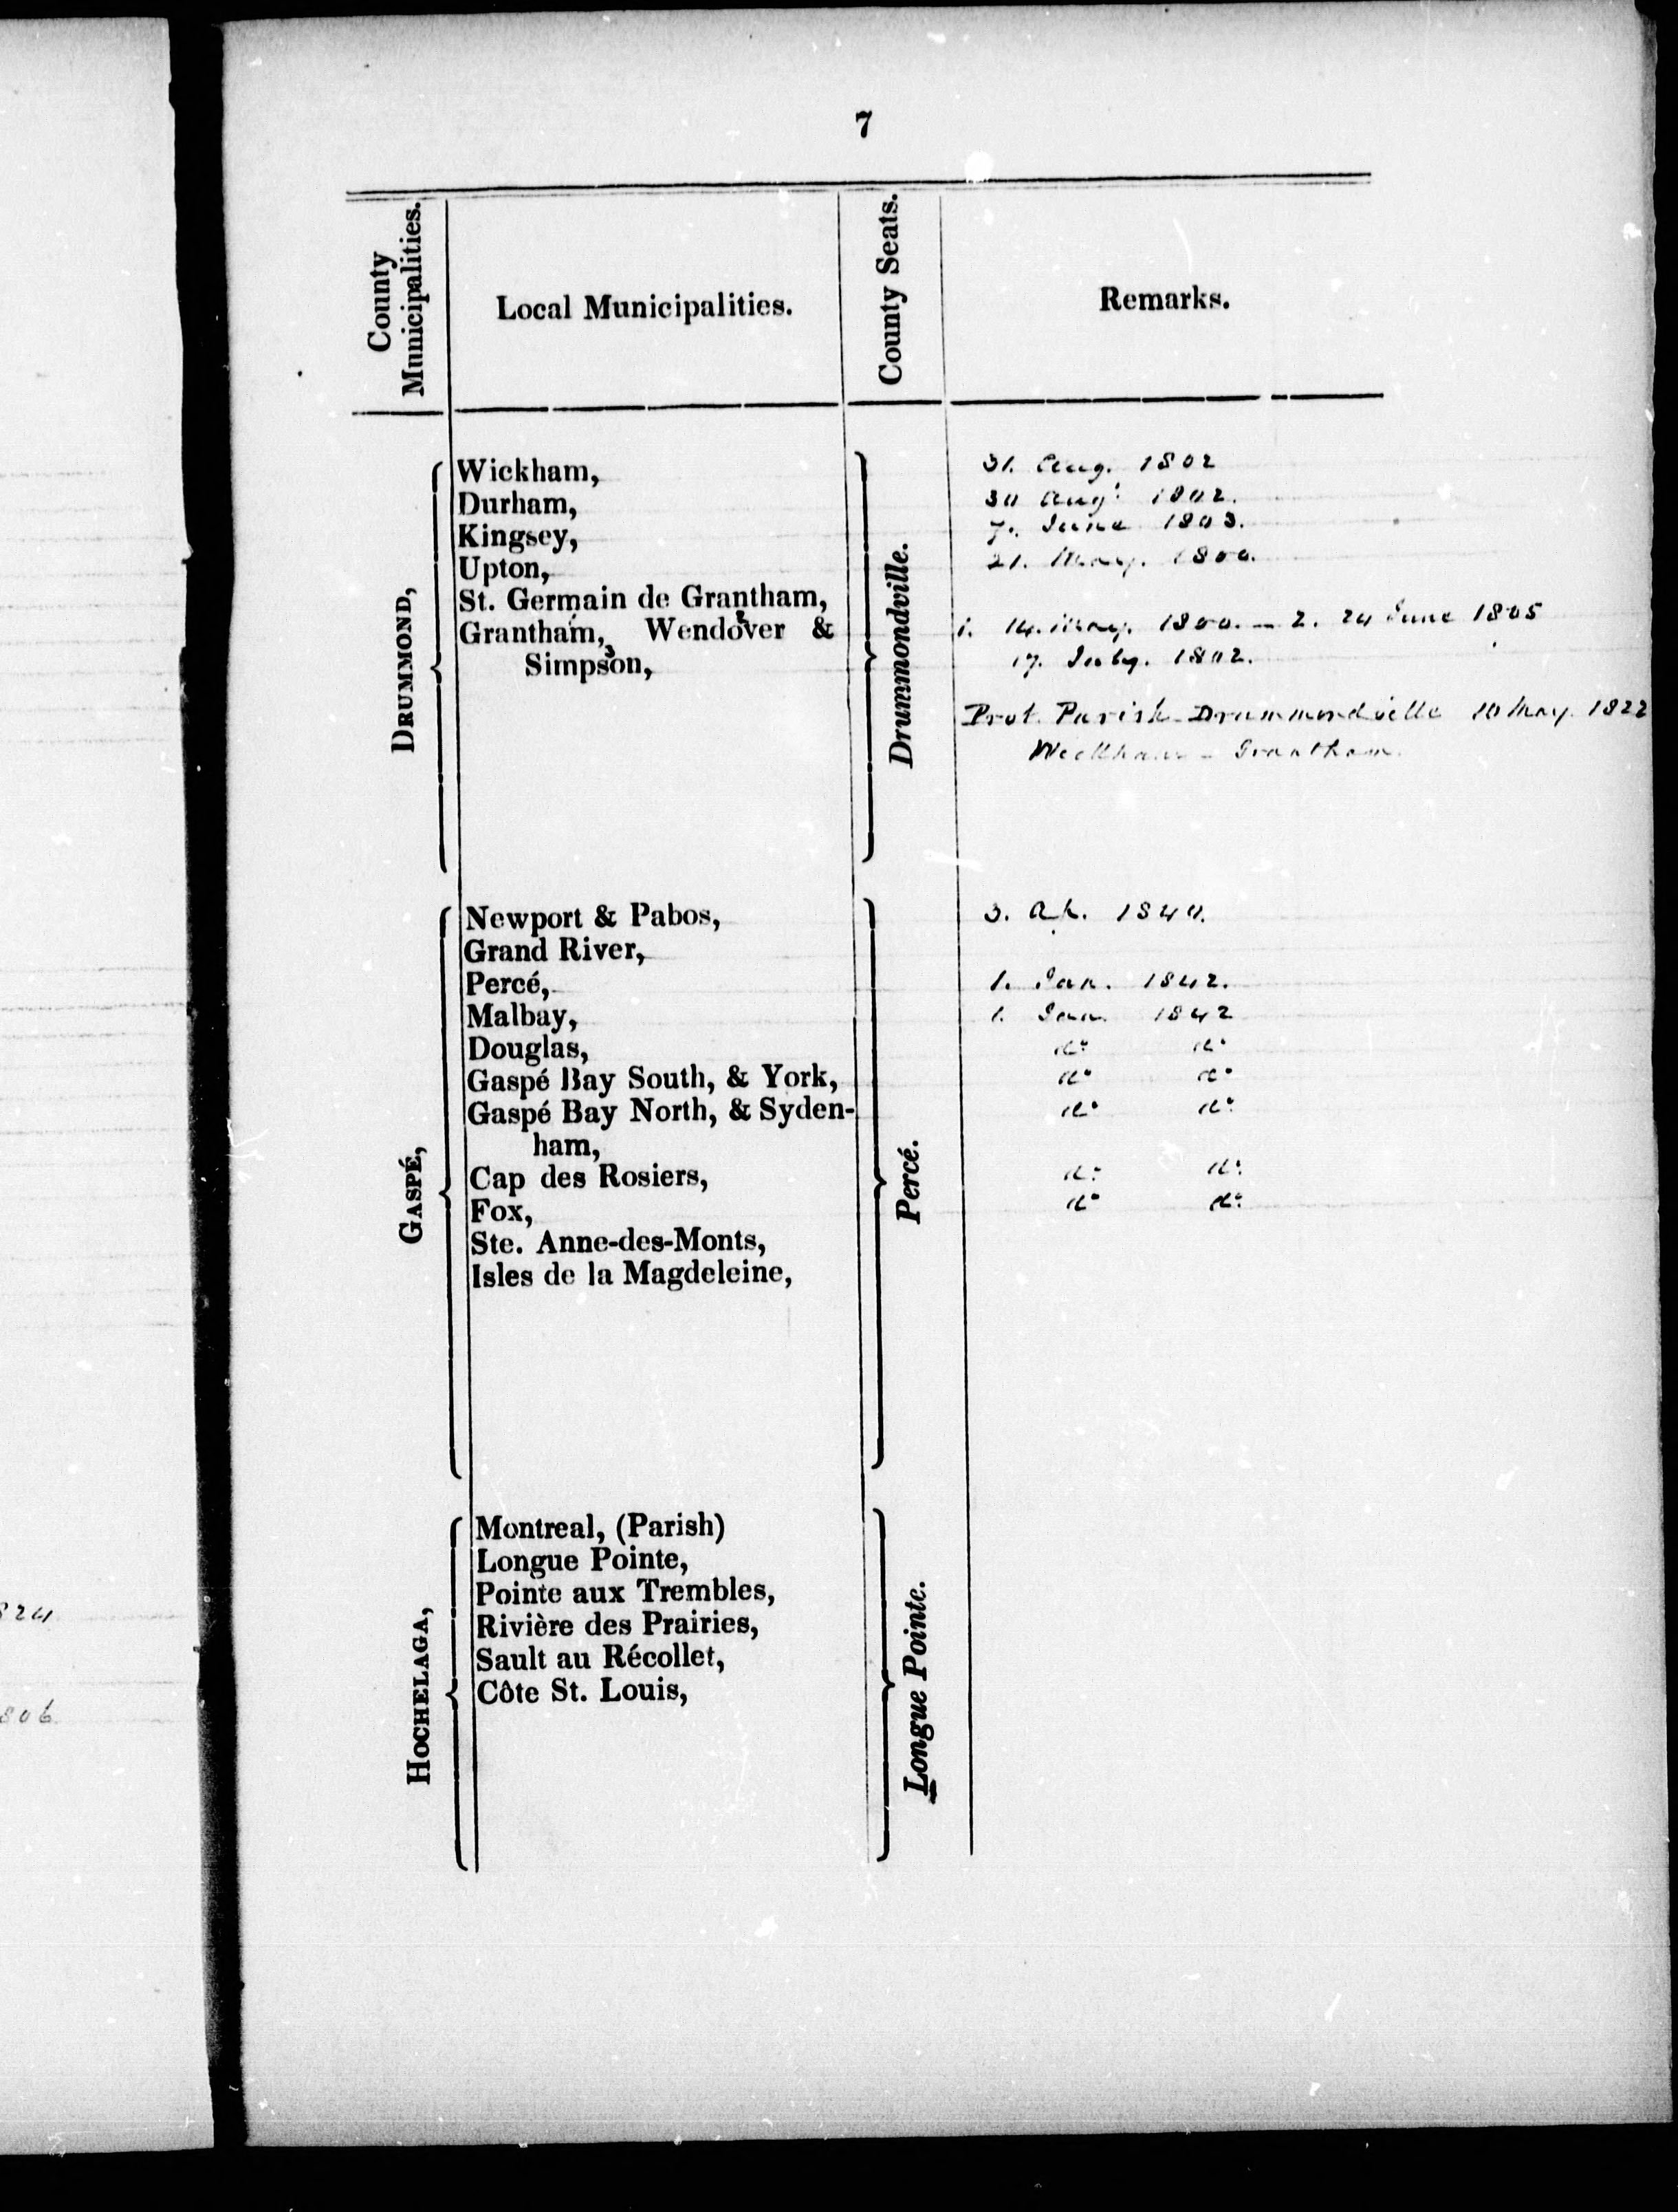 7
County Municipalities.
Local Municipalities.
County Seats.
Remarks.
DRUMMOND,
Wickham, 31. Aug. 1802
Durham, 30 Augt 1802.
Kingsey, 7. June 1803.
Upton, 21. May. 1800.
St. Germain de Grantham,
Grantham, Wendover & 1. 14. May. 1800. — 2. 24 June 1805
Simpson, 17. July. 1802.
Drummondville.
Prot. Parish Drummondville 10 May. 1822
Wickham - Grantham.
GASPÉ,
Newport & Pabos, 3. Ap. 1840.
Grand River,
Percé, 1. Jan. 1842.
Malbay, 1. Jan. 1842
Douglas, do do
Gaspé Bay South, & York, do do
Gaspé Bay North, & Syden- do do
ham,
Cap des Rosiers, do do
Fox, do do
Ste. Anne-des-Monts,
Isles de la Magdeleine,
Percé.
HOCHELAGA,
Montreal, (Parish)
Longue Pointe,
Pointe aux Trembles,
Rivière des Prairies,
Sault au Récollet,
Côte St. Louis,
Longue Pointe.
824
806